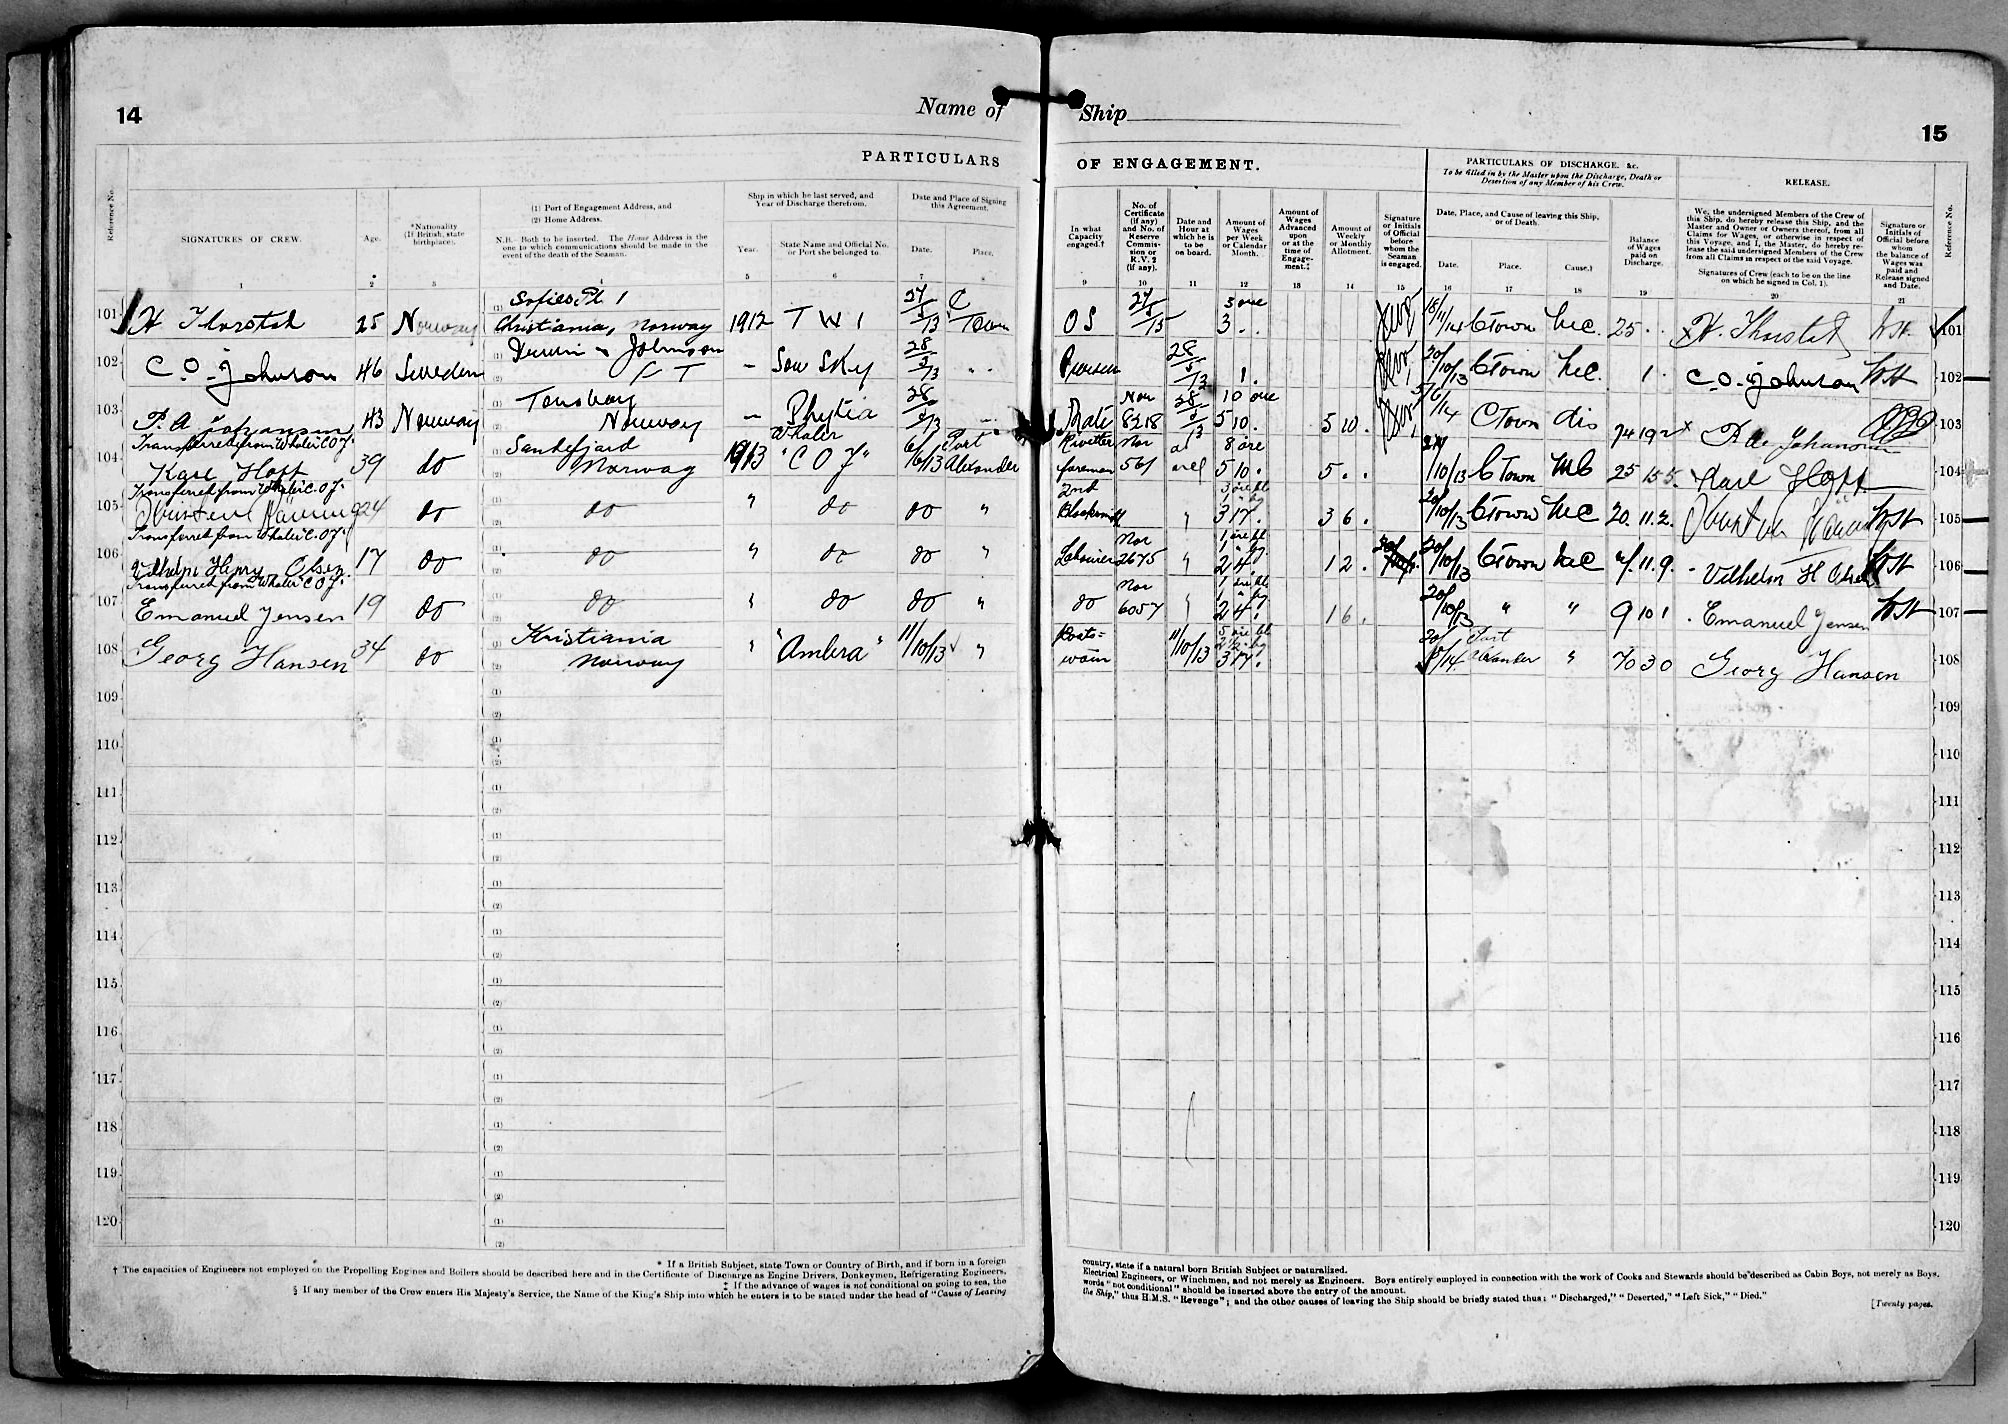 14
Name of
Ship
15
PARTICULARS
OF ENGAGEMENT.
PARTICULARS OF DISCHARGE. &c.
To be filled in by the Master upon the Discharge, Death or
Desertion of any Member of his Crew.
RELEASE.
Reference No.
SIGNATURES OF CREW.
1
Age.
2
*Nationality
(If British, state
birthplace).
3
(1) Port of Engagement Address, and
(2) Home Address.
N.B.- Both to be inserted. The Home Address is the
one to which communications should be made in the
event of the death of the Seaman.
Ship in which he last served, and
Year of Discharge therefrom.
Year.
5
State Name and Official No.
or Port she belonged to.
6
Date and Place of Signing
this Agreement.
Date.
7
Place.
In what
Capacity
engaged.†
9
No. of
Certificate
(if any)
and No. of
Reserve
Commis-
sion or
R.V. 2
(if any).
10
Date and
Hour at
which he is
to be
on board.
11
Amount of
Wages
per Week
or Calendar
Month.
12
Amount of
Wages
Advanced
upon
or at the
time of
Engage-
ment.‡
13
Amount of
Weekly
or Monthly
Allotment.
14
Signature
or Initials
of Official
before
whom the
Seaman
is engaged.
15
Date, Place, and Cause of leaving this Ship,
or of Death.
Date.
16
Place.
17
Cause.†
18
Balance
of Wages
paid on
Discharge.
19
We, the undersigned Members of the Crew of
this Ship, do hereby release this Ship, and the
Master and Owner or Owners thereof, from all
Claims for Wages, or otherwise in respect of
this Voyage, and I, the Master, do hereby re-
lease the said undersigned Members of the Crew
from all Claims in respect of the said Voyage.
Signatures of Crew (each to be on the line
on which he signed in Col. 1).
20
Signature or
Initials of
Official before
whom
the balance of
Wages was
paid and
Release signed
and Date.
21
Reference No.
101 H Thorstad 25 Norway Christiania, Norway 1912 T W I C Town OS 3 . . 18/11/14 C Town M.C. 25 . . H. Thorstad 101
102 C. O. Johnson 46 Sweden Johnson C T - Sou Sky 28 1 . 20/10/13 C Town M.C. 1 . C. O. Johnson 102
103 P. A Johansen 43 Norway Tonsberg Norway - Phytia 28 Mate Nor 8218 5 10 . 5 10 . 5/6/14 C Town dis 74 19 2 P. A. Johansen 103
Transferred from Whaler C.O.J.
104 Karl Hoff 39 do Sandefjord Norway 1913 Whaler "C O J" 6/6/13 Port Alexander Rivetter foreman Nor 561 8 öre 5 10 . 5 . . /10/13 C Town M.C 25 15 5 Karl Hoff 104
Transferred from Whaler C.O.J.
105 24 do do " do do " 2nd Blacksmith " 3 17 . 3 6 . 20/10/13 C Town M.C 20. 11. 2. 105
Transferred from Whaler C.O.J.
106 Vilhelm Henry Olsen 17 do do " do do " Labourer Nor 2675 " 2 4 . 1 2 . 20/10/13 C Town M.C 11. 9. Vilhelm H Olsen 106
Transferred from Whaler C O J.
107 Emanuel Jensen 19 do do " do do " do Nor 6057 " 2 4 . 1 6 . 20/10/13 " " 9 10 1 . Emanuel Jensen 107
108 Georg Hansen 34 do Kristiania Norway " "Ambra" 11/10/13 " Boats= wain 11/10/13 3 17 . Port Alexander " 70 3 0 Georg Hansen 108
109 109
110 110
111 111
112 112
113 113
114 114
115 115
116 116
117 117
118 118
119 119
120 120
* If a British Subject, state Town or Country of Birth, and if born in a foreign
country, state if a natural born British Subject or naturalized.
† The capacities of Engineers not employed on the Propelling Engines and Boilers should be described here and in the Certificate of Discharge as Engine Drivers, Donkeymen, Refrigerating Engineers,
Electrical Engineers, or Winchmen, and not merely as Engineers. Boys entirely employed in connection with the work of Cooks and Stewards should be described as Cabin Boys, not merely as Boys.
‡ If the advance of wages is not conditional on going to sea, the
words "not conditional" should be inserted above the entry of the amount.
§ If any member of the Crew enters His Majesty's Service, the Name of the King's Ship into which he enters is to be stated under the head of "Cause of Leaving
the Ship," thus H.M.S. "Revenge"; and the other causes of leaving the Ship should be briefly stated thus: "Discharged," "Deserted," "Left Sick," "Died."
[Twenty pages.